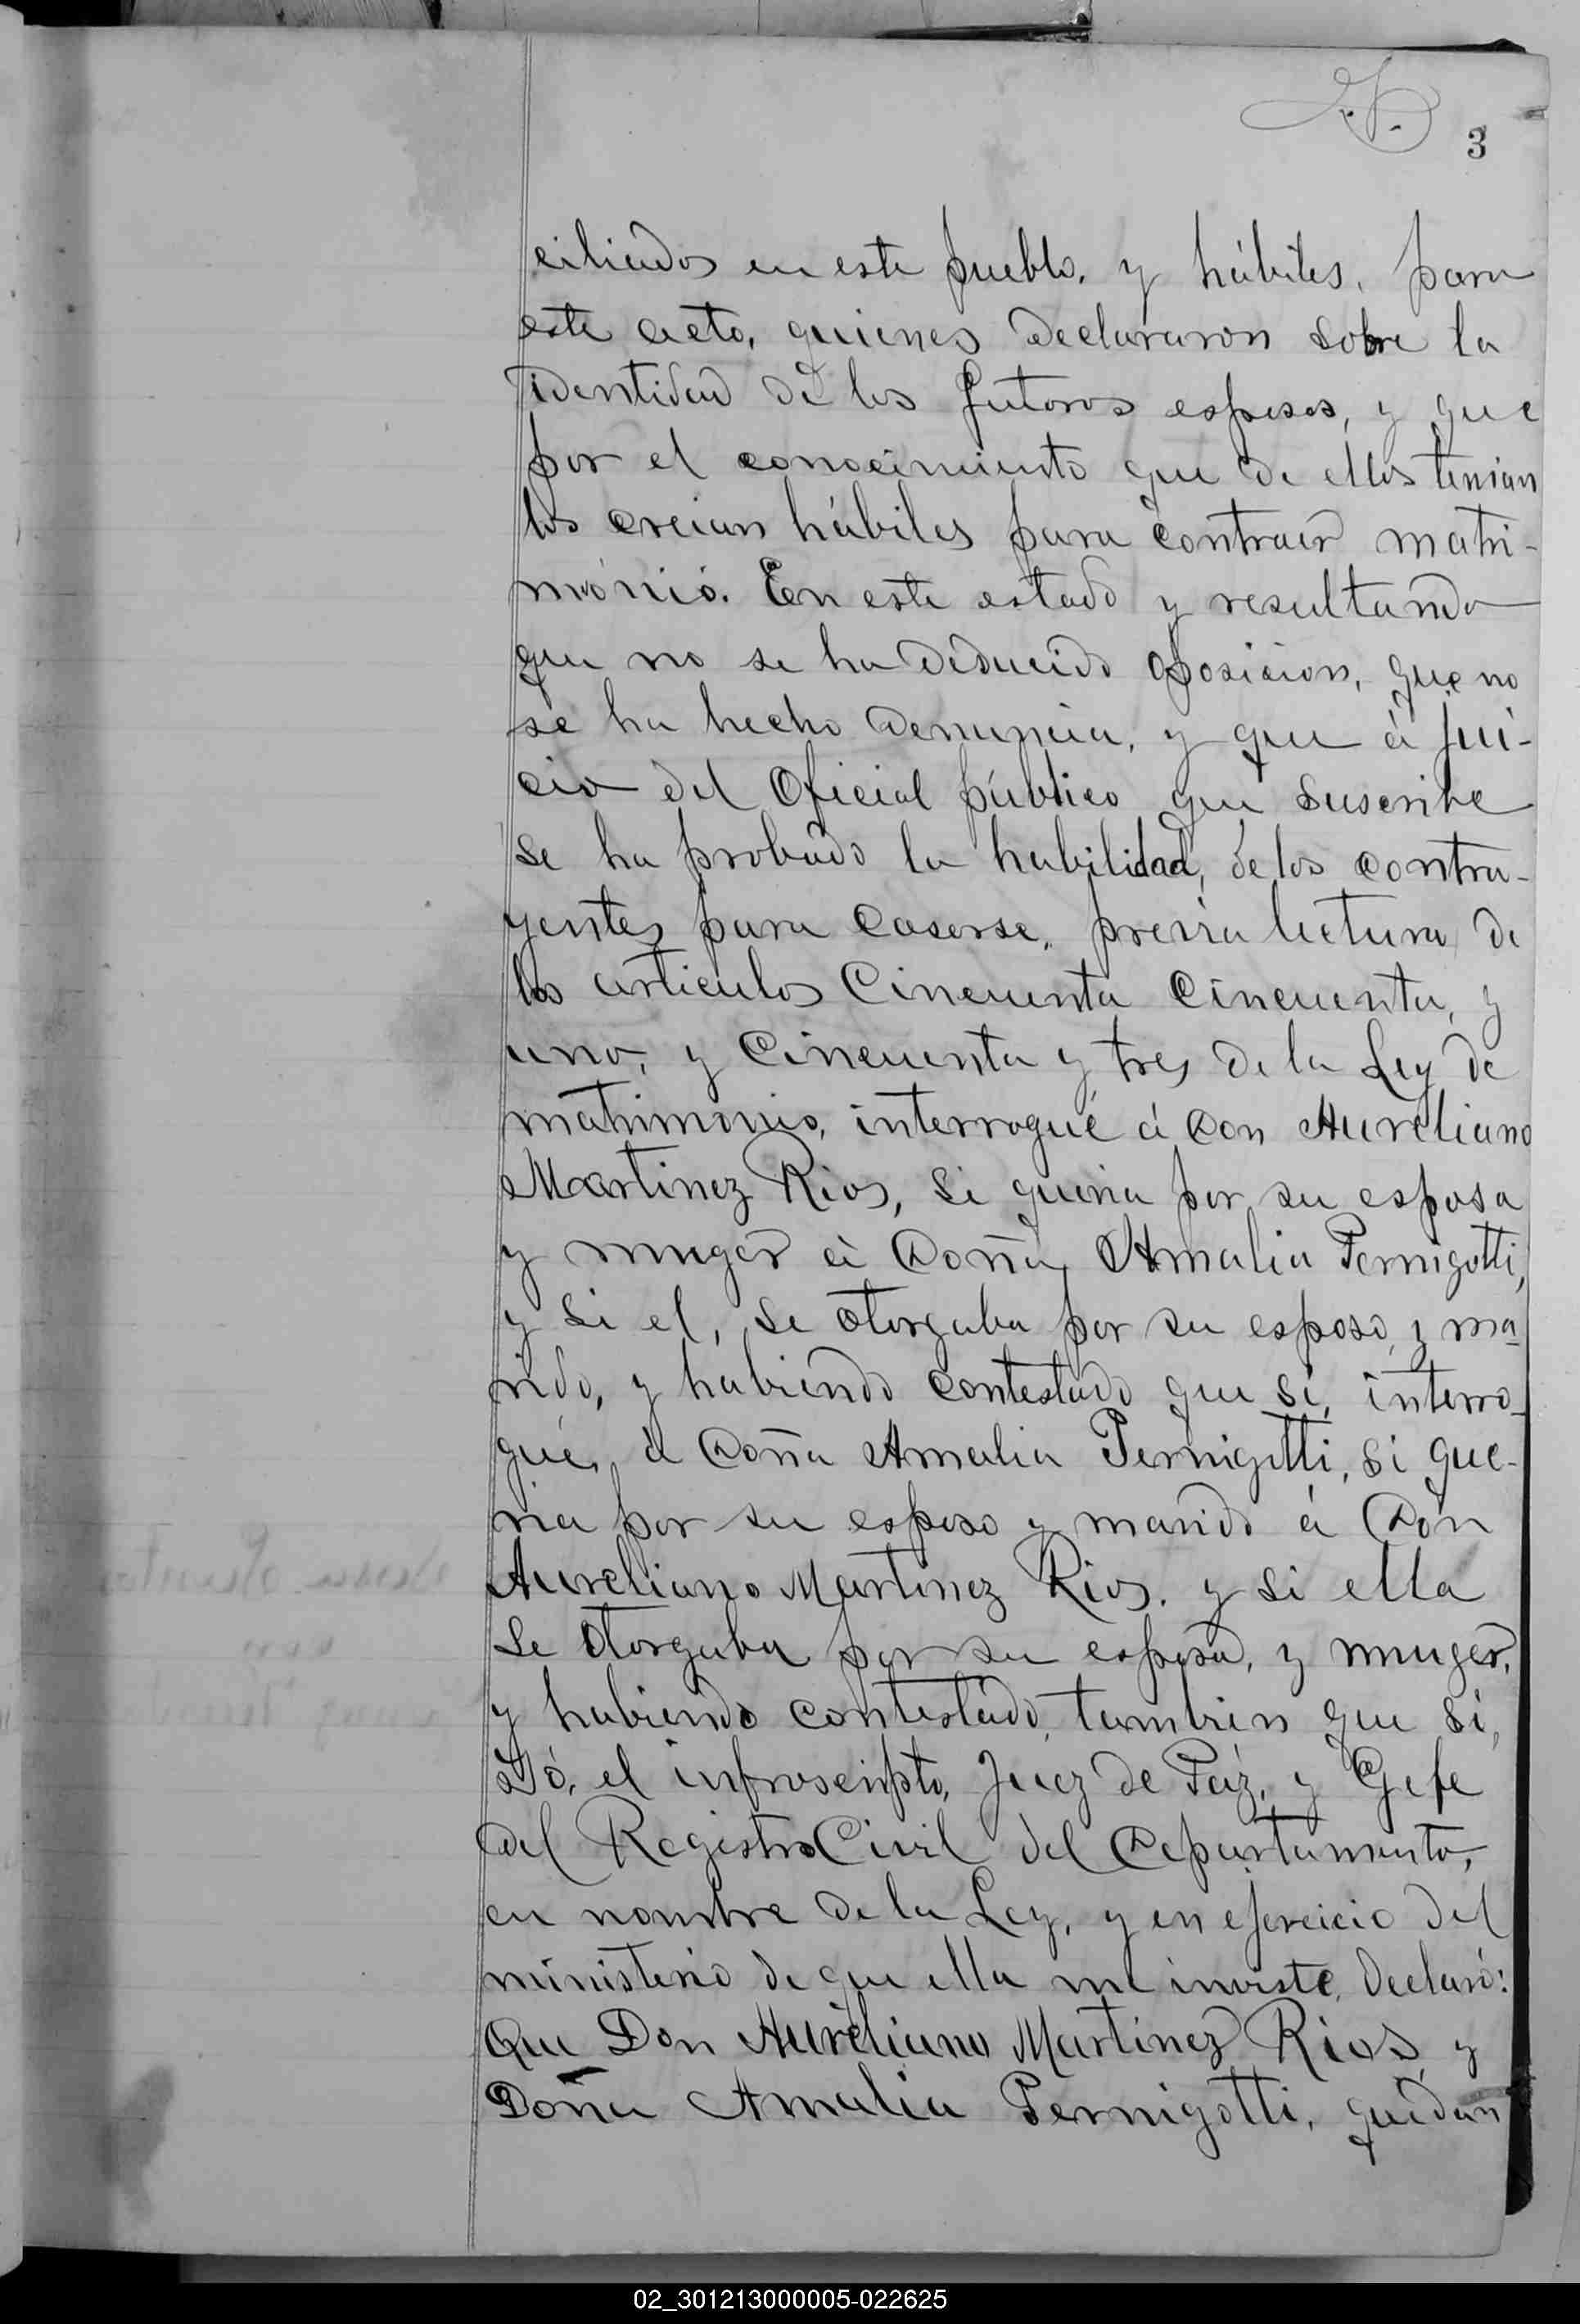 3
ciliados en este pueblo, y hábiles, para
este acto, quienes declararon sobre la
identidad de los futoros esposos, y que
por el conocimiento que de ellos tenian
los creian hábiles para contraer matri-
mónió. En este estado y resultando
que no se ha deducido oposición, que no
se ha hecho denuncia, y que á jui-
cio del Oficial público que suscribe
se ha probado la habilidad, de los contra-
yentes para casarse, previa lectura de
los articulos Cincuenta Cincuenta, y
uno, y Cincuenta y tres de la Ley de
matrimonio, interrogué á Don Aureliano
Martinez Rios, si queria por su esposa
y muger á Doña Amalia Pernigotti,
y si el, se otorgaba por su esposo, y ma
rido, y habiendo contestado que si, interro-
gué, á Doña Amalia Pernigotti, si que-
ria por su esposo y marido á Don
Aureliano Martinez Rios. y si ella
se otorgaba por su esposa, y muger,
y habiendo contestado, tambien que si,
Yó, el infrascripto, Juez de Páz, y Gefe
del Registro Civil del Departamento,
en nombre de la Ley, y en ejercicio del
ministerio de que ella me inviste, declaró:
Que Don Aureliano Martinez Rios y
Doña Amalia Pernigotti, quedan
02_301213000005-022625